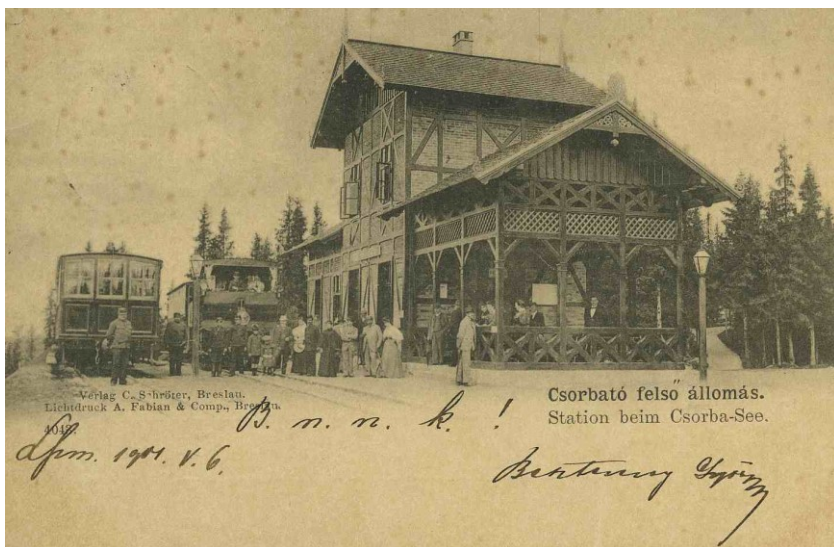 Verlag C. Schröter, Breslau.
Lichtdruck A. Fabian & Comp., Breslau.
4042.
Csorbató felső állomás.
Station beim Csorba-See.
B. n. n. k. !
1901. V. 6.
György